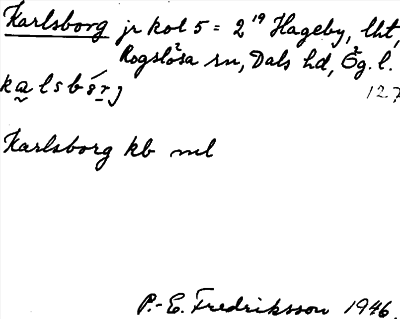 Karlsborg jr kol 5 = 2¹⁹ Hageby, lht,
Rogslösa sn, Dals hd, Ög. l.
127
Karlsborg kb ml
P.-E. Fredriksson 1946.